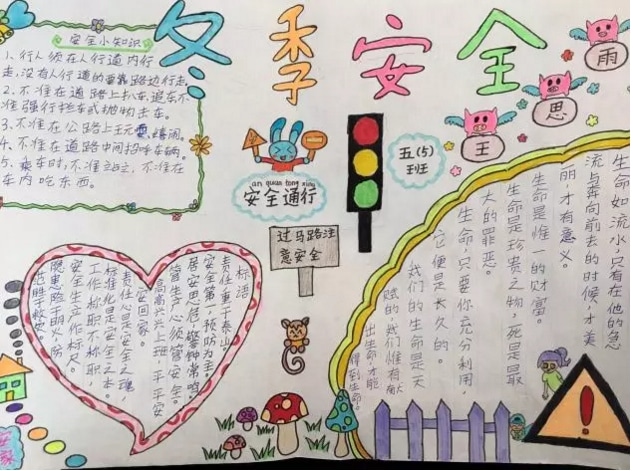 冬季安全
安全小知识
1、行人须在人行道内行
走,没有人行道的要靠路边行走。
2、不准在道路上扒车、追车、不
准强行拦车或抛物击车。
3、不准在公路上玩耍、嬉闹。
4、不准在道路中间招呼车辆。
5、乘车时,不准站立,不准在
车内吃东西。
an quan tong xing
安全通行
五(5)
班
王
思
雨
过马路注
意安全
标语
责任重于泰山
安全第一,预防为主。
居安思危,警钟常鸣。
管生产必须管安全。
高高兴兴上班,平平安
安回家。
责任心是安全之魂,
标准化是安全之本。
工作称职不称职,
安全生产作标尺。
隐患险于明火,防
范胜于救灾。
生命如流水,只有在他的急
流与奔向前去的时候,才美
丽,才有意义。
生命是惟一的财富。
生命是珍贵之物,死是最
大的罪恶。
生命,只要你充分利用,
它便是长久的。
我们的生命是天
赋的,我们惟有献
出生命,才能
得到生命。